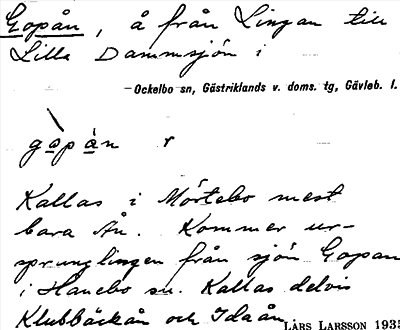 Gopån, å från Lingan till
Lilla Dammsjön i
Ockelbo sn, Gästriklands v. doms. tg, Gävleb. l.
gopån r
Kallas i Mörtebo mest
bara Ån. Kommer ur-
sprungligen från sjön Gopan
i Hanebo sn. Kallas delvis
Klubbäckån och Idaån
LARS LARSSON 1935